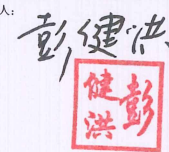 人：
彭健洪
彭健洪